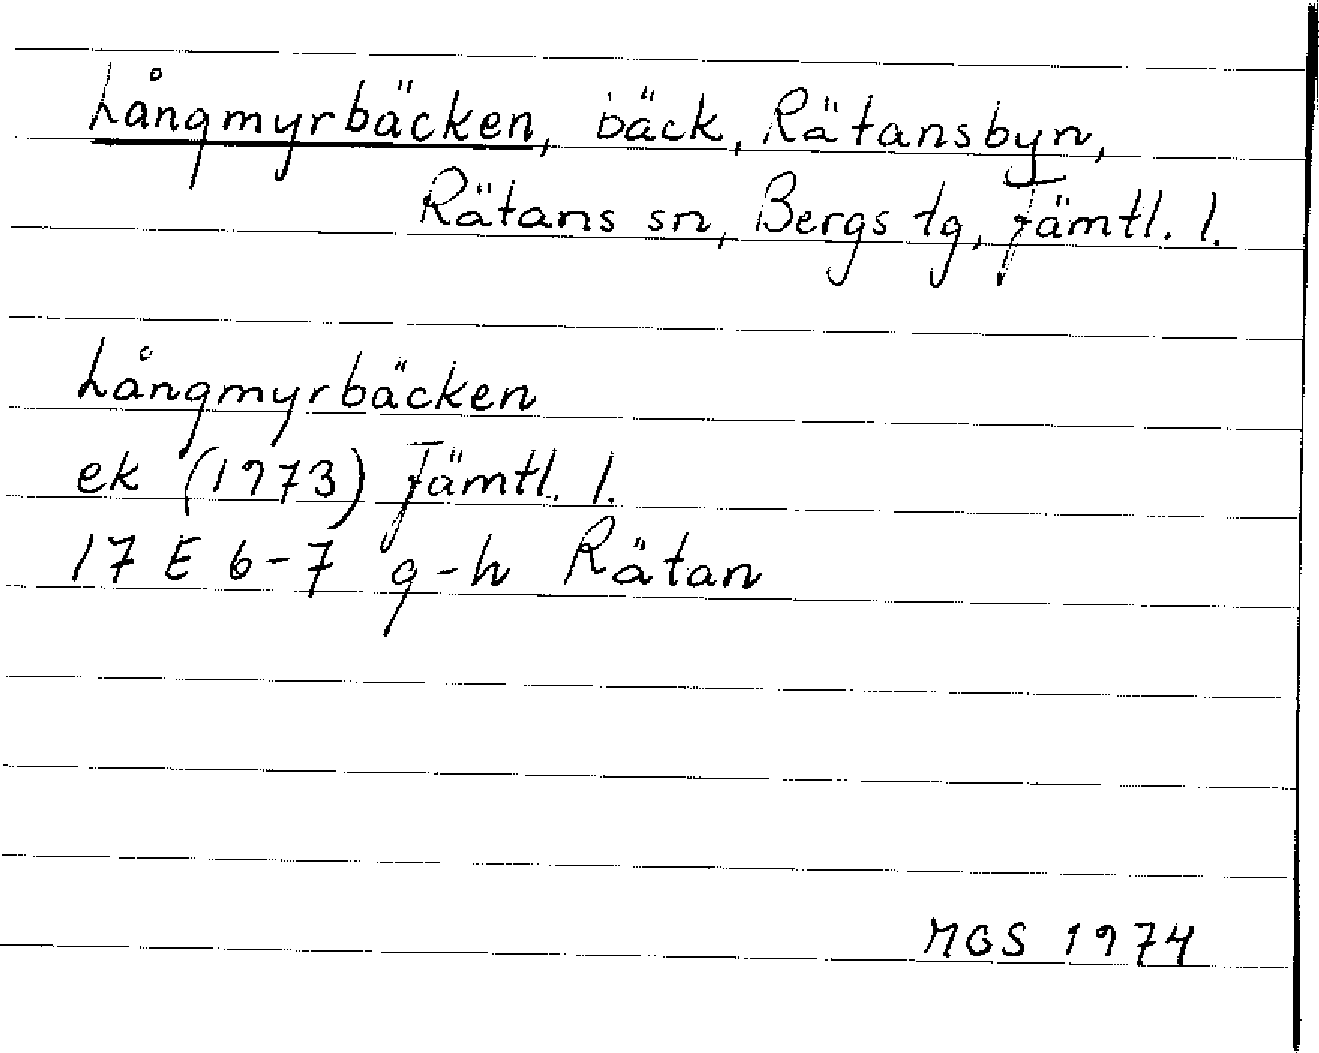 Långmyrbäcken, bäck, Rätansbyn,
Rätans sn, Bergs tg, Jämtl. l.
Långmyrbäcken
ek (1973) Jämtl. l.
17 E 6-7 g-h Rätan
MGS 1974